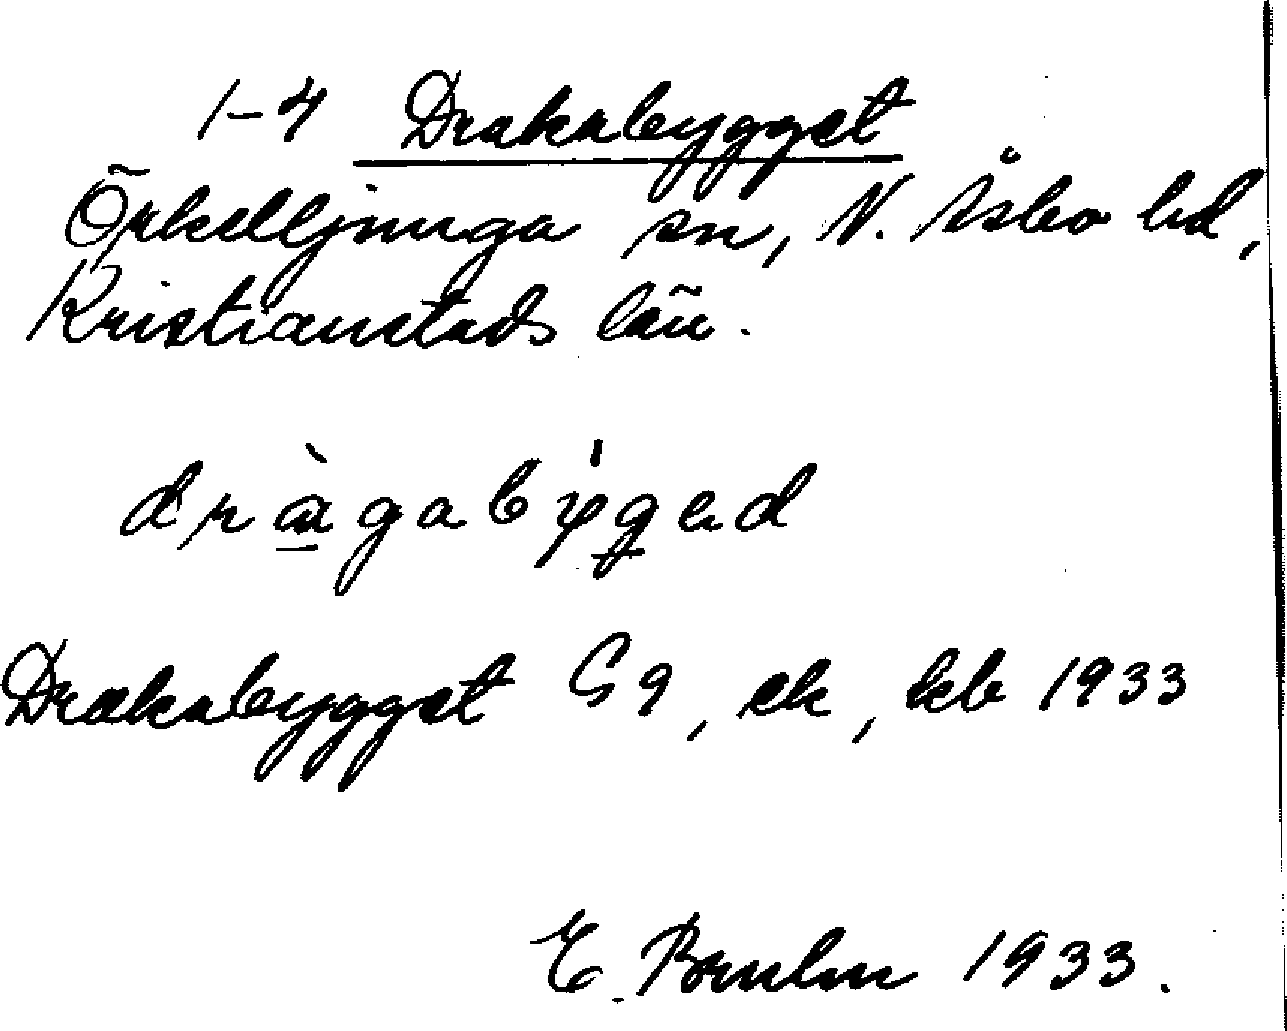 1-4 Drakabygget
Örkelljunga sn, N. Åsbo hd,
Kristianstads län.
dràgabýged
Drakabygget G9, ek, kb 1933
E. Bruhn 1933.